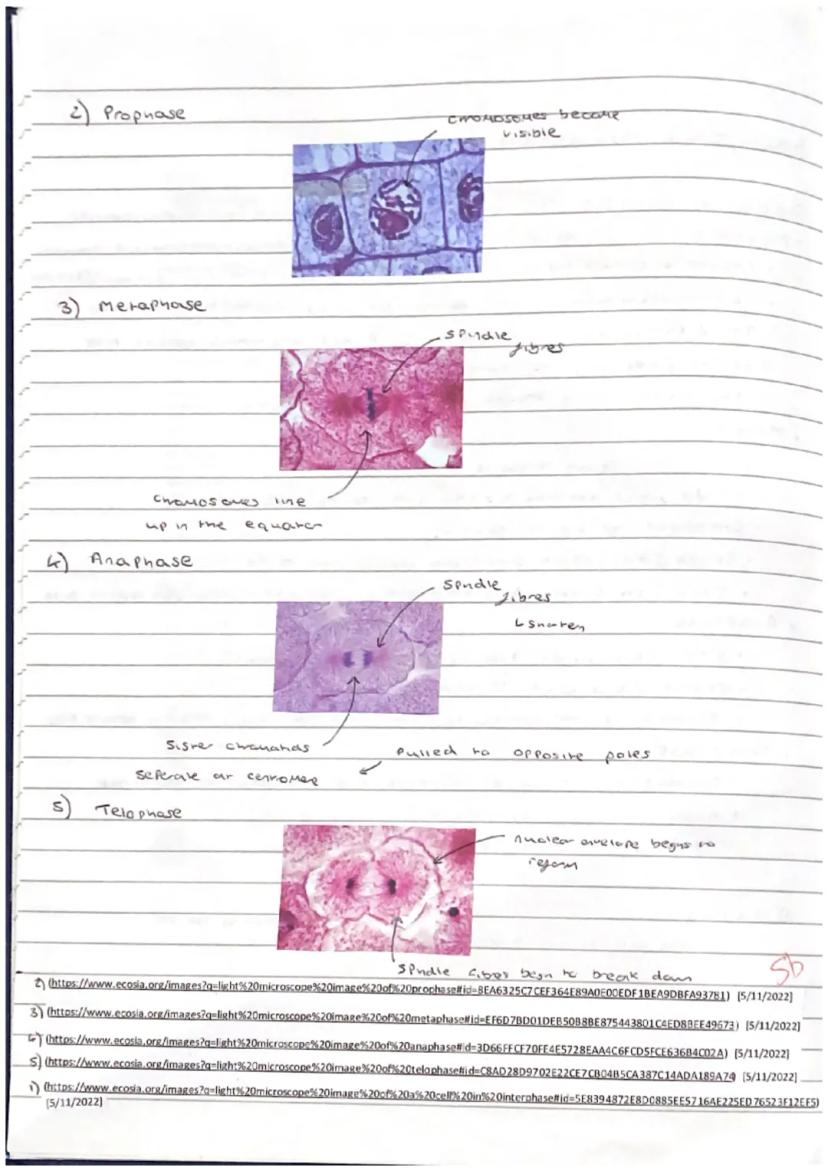 2) Prophase
chromosomes become
visible
3) Metaphase
spindle
fibres
chromosomes line
up in the equator
4) Anaphase
spindle
fibres
↳ shorten
sister chromatids
pulled to opposite poles
seperate at centromere
5) Telophase
nuclear envelope begins to
reform
spindle fibres begin to break down
5b
2) (https://www.ecosia.org/images?q=light%20microscope%20image%20of%20prophase#id=8EA6325C7CEF364E89A0E00EDF1BEA9DBFA93781) [5/11/2022]
3) (https://www.ecosia.org/images?q=light%20microscope%20image%20of%20metaphase#id=EF6D7BD01DEB50B8BE875443801C4ED8BEE49673) [5/11/2022]
4) (https://www.ecosia.org/images?q=light%20microscope%20image%20of%20anaphase#id=3D66FFCF70FE4E5728EAA4C6FCD5FCE636B4C02A) [5/11/2022]
5) (https://www.ecosia.org/images?q=light%20microscope%20image%20of%20telophase#id=C8AD28D9702E22CE7CB04B5CA387C14ADA189A74 [5/11/2022]
1) (https://www.ecosia.org/images?q=light%20microscope%20image%20of%20a%20cell%20in%20interphase#id=5E8394872E8D0885EE5716AE225ED76523F12EF5)
[5/11/2022]